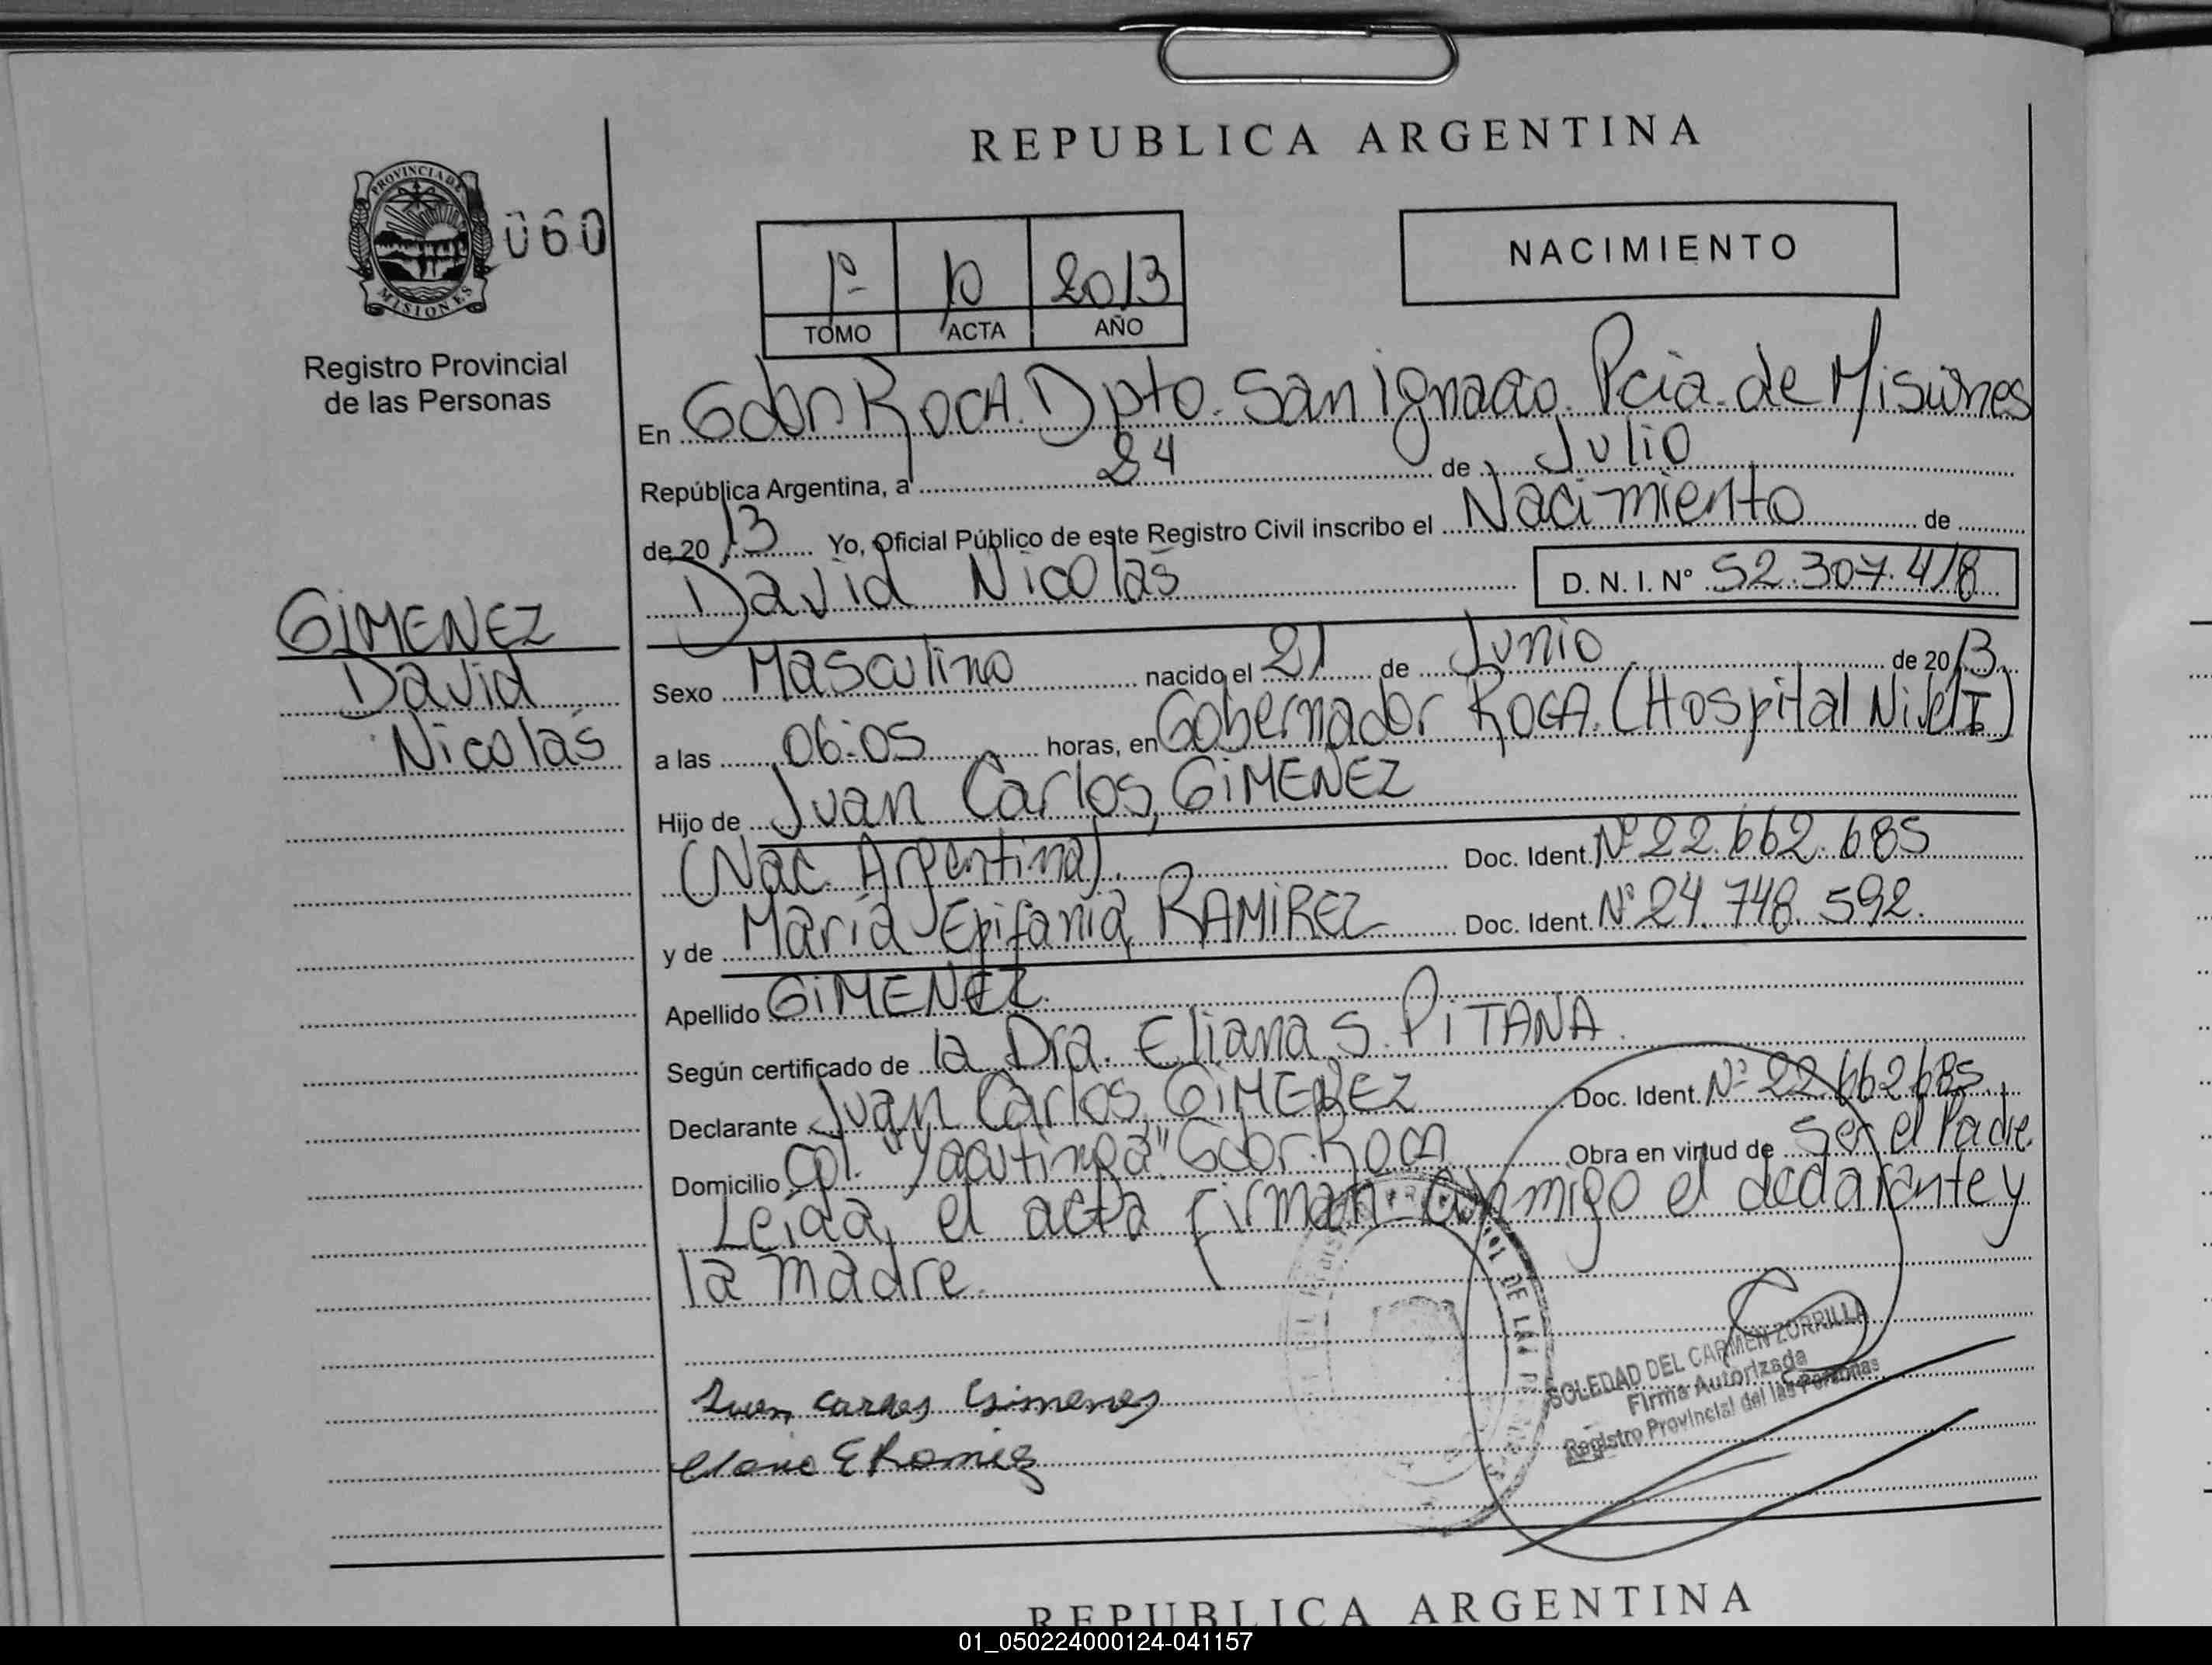 REPUBLICA ARGENTINA
PROVINCIA DE
MISIONES
060
Registro Provincial
de las Personas
1º 10 2013
TOMO ACTA AÑO
NACIMIENTO
En Gdor. ROCA. Dpto. San Ignacio. Pcia. de Misiones
República Argentina, a 24 de Julio
de 2013 Yo, Oficial Público de este Registro Civil inscribo el Nacimiento de
David Nicolás D. N. I. N° 52.307.418
GIMENEZ
David
Nicolás
Sexo Masculino nacido el 21 de Junio de 2013.
a las 06:05 horas, en Gobernador ROCA. (Hospital Nivel I)
Hijo de Juan Carlos, GIMENEZ
(Nac. Argentina). Doc. Ident. Nº 22.662.685
y de María Epifania, RAMIREZ Doc. Ident. Nº 24.748.592.
Apellido GIMENEZ.
Según certificado de la Dra. Eliana S. PITANA.
Declarante Juan Carlos, GIMENEZ Doc. Ident. Nº 22.662.685
Domicilio Col. "Yacutinga" Gdor. Roca Obra en virtud de Ser el Padre.
Leída, el acta firman conmigo el declarante y
la madre.
SOLEDAD DEL CARMEN ZORRILLA
Firma Autorizada
Registro Provincial del las Personas
Juan Carlos Gimenes
Maria E Ramirez
REPUBLICA ARGENTINA
01_050224000124-041157